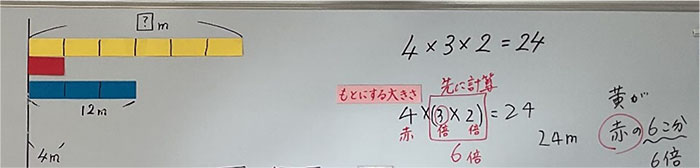 ? m
12m
4m
4×3×2=24
もとにする大きさ
先に計算
4×(3×2)=24
赤 倍 倍
6倍
24m
黄が
赤の6こ分
6倍